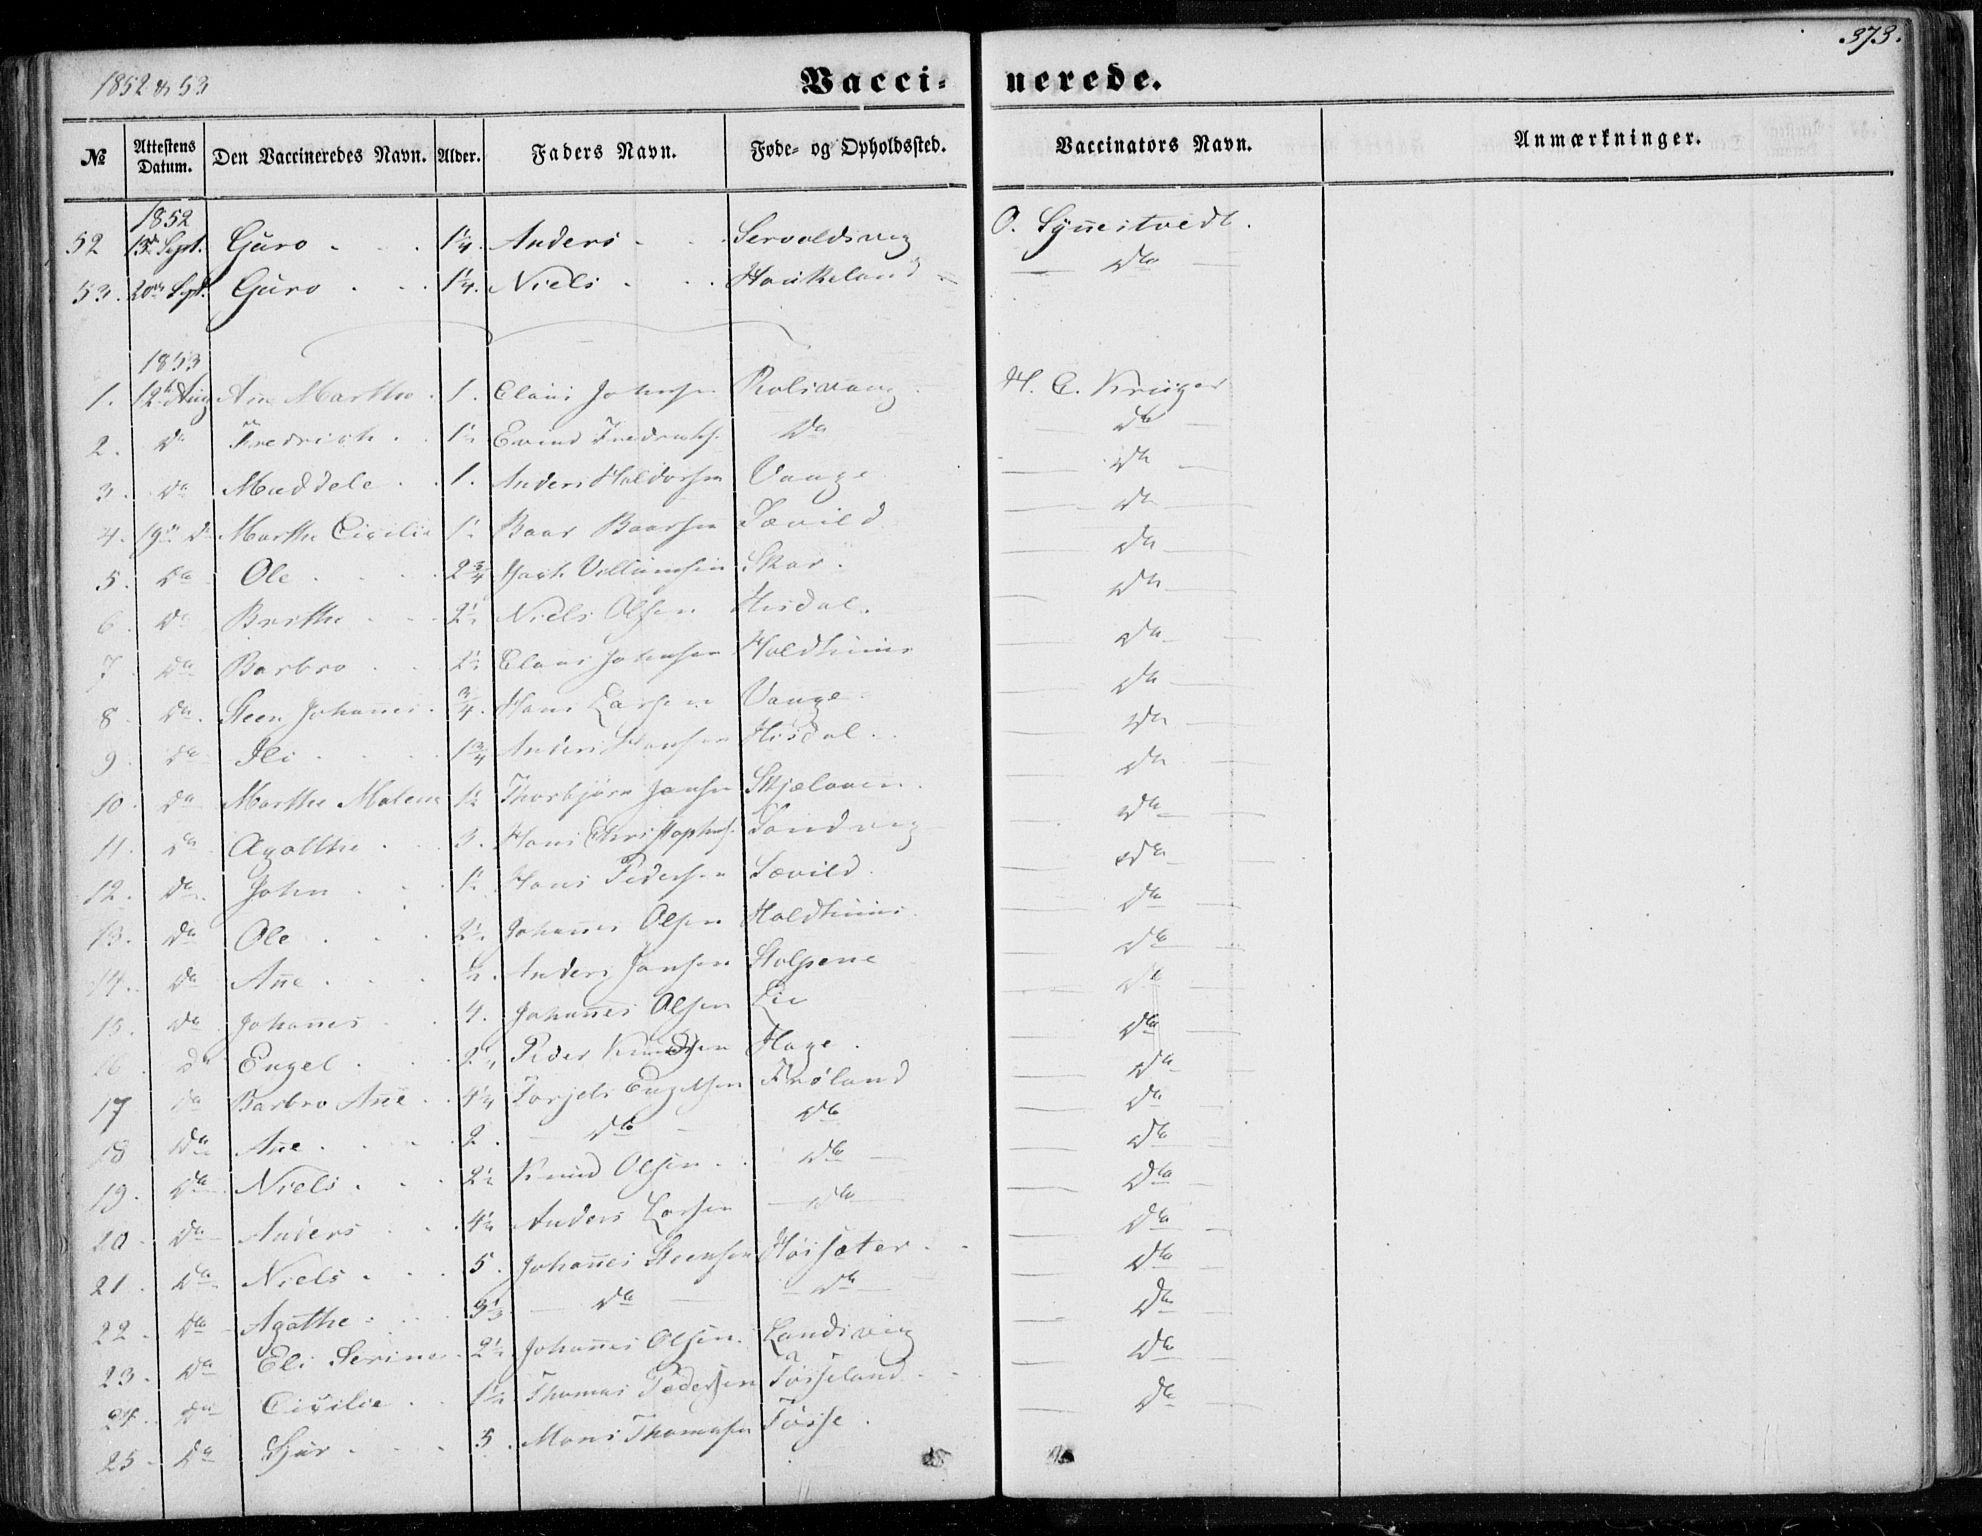 373.
1852 & 53
Vacci- nerede.
№ Attestens Datum. Den Vaccineredes Navn. Alder. Faders Navn. Føde- og Opholdssted. Vaccinators Navn. Anmærkninger.
1852
52 13de Sept. Guro 1¼. Anders Servoldsvig O. Synestvedt.
53. 20de Sept. Guro 1¼. Niels Haukeland Do
1853
1. 12te Aug Ane Marthe 1. Claus Johnsen Rolsvaag H. C. Krüger
2. Do Fredrich 1½ Eivind Fredriks. Do Do
3. Do Maddele 1. Anders Haldorsen Vaage Do
4. 19de Do Marthe Cicilie 1½ Baar Baarsen Sævild Do
5. Do Ole 2¾ Villumsen Skar. Do
6. Do Brithe 2½ Niels Olsen Hisdal. Do
7. Do Barbro 2½ Claus Johnsen Holdhuus Do
8. Do. Steen Johannes ¾. Hans Larsen Vaage. Do
9. Do Ili 1¾ Anders Hansen Hisdal. Do
10. Do Marthe Malene 1½ Thorbjørn Jansen Skjelaaen. Do
11. Do Agathe 3. Hans Christophers. Sandvig Do
12. Do. John 1½ Hans Pedersen Sævild. Do
13. Do Ole 2½ Johannes Olsen Holdhuus. Do
14. Do Ane ½. Anders Jansen Stolpene Do
15. Do Johannes 4. Johannes Olsen Lie Do
16 Do Engel 2¼ Peder Knudsen Hage. Do
17 Do Barbro Ane 4¼ Torjels Engelsen Frøland Do
18 Do Ane 2. Do Do Do
19. Do Niels 2½ Knud Olsen Do Do
20 Do Anders 4½ Anders Larsen Do Do
21. Do Niels 5. Johannes Steensen Høisæter Do
22. Do Agathe 3⅓ Do Do Do
23. Do Eli Serine 2½ Johannes Olsen Landsvig Do
24. Do Cicilie 1½ Thomas Pedersen Tøsseland Do
25. Do Sjur 5. Mons Thomasen Tøsse. Do